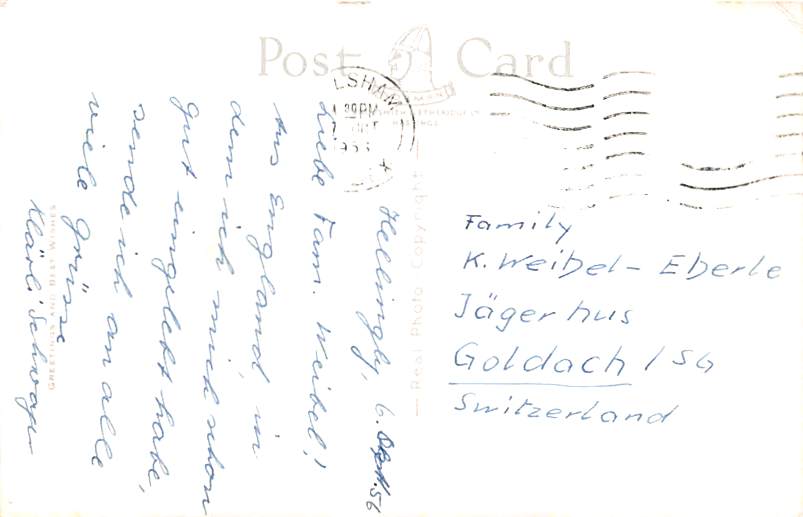 Post Card
LSHAM
PM
Hellingly, 6. Okt. 56
Liebe Fam. Weibel!
Aus England, in
dem ich mich schon
gut eingelebt habe,
sende ich an alle
viele Grüsse
Klärli
GREETINGS AND BEST WISHES
Real Photo Copyright
Family
K. Weibel - Eberle
Jägerhus
Goldach / SG
Switzerland